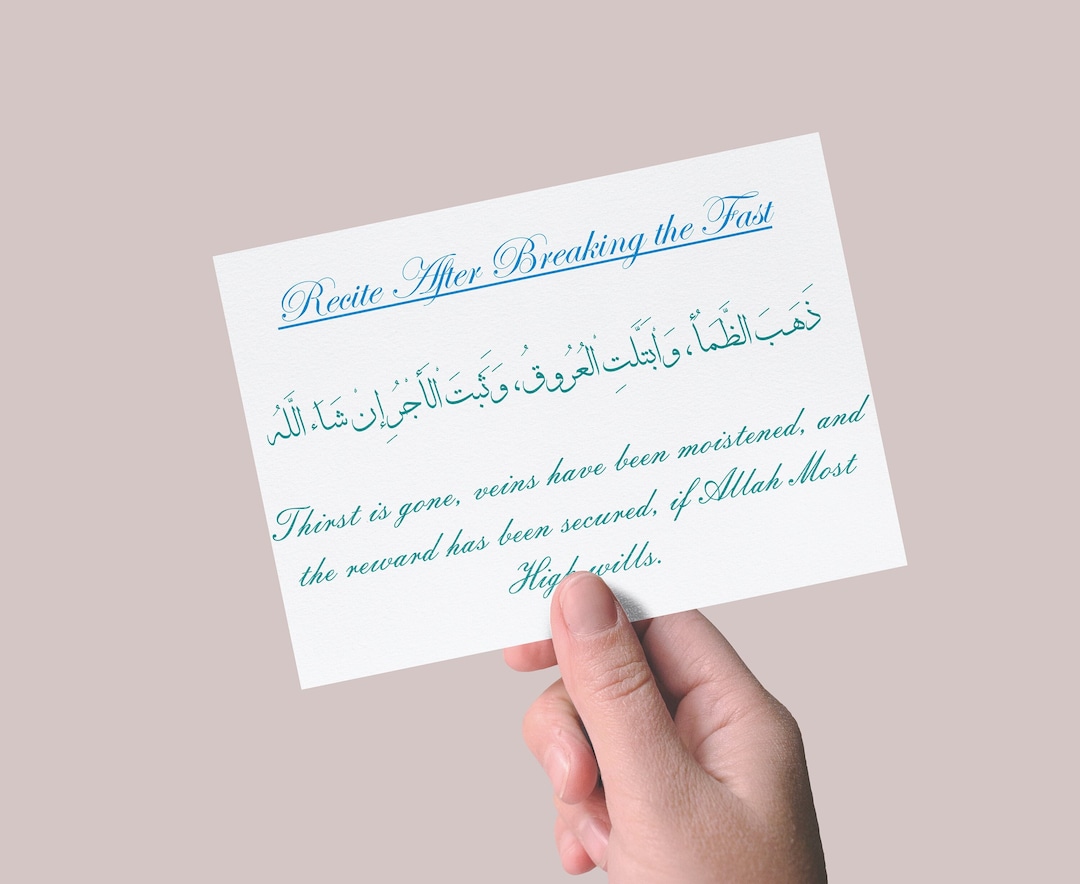 Recite After Breaking the Fast
ذَهَبَ الظَّمَأُ، وَابْتَلَّتِ الْعُرُوقُ، وَثَبَتَ الْأَجْرُ إِنْ شَاءَ اللَّهُ
Thirst is gone, veins have been moistened, and
the reward has been secured, if Allah Most
High wills.